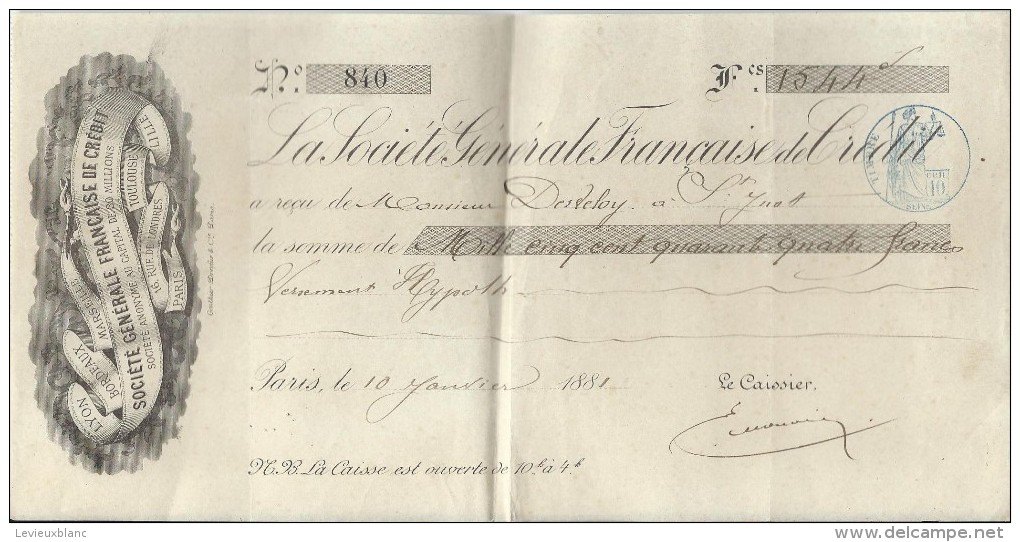 N.o 840
F.cs 1544
La Société Générale Française de Crédit
TIMBRE
10
a reçu de Monsieur à St
la somme de Mille cinq cent quarante quatre francs
Versement Hypoth
Paris, le 10 Janvier 1881
Le Caissier.
N.B. La Caisse est ouverte de 10h à 4h
LYON
BORDEAUX
MARSEILLE
SOCIÉTÉ GÉNÉRALE FRANÇAISE DE CRÉDIT
SOCIÉTÉ ANONYME AU CAPITAL DE 30 MILLIONS
TOULOUSE
LILLE
16, RUE DE LONDRES
PARIS
Levieuxblanc
www.delcampe.net